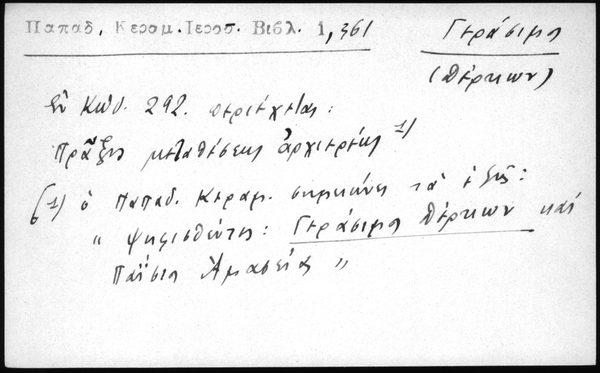 Παπαδ. Κεραμ. Ιεροσ. Βιβλ. 1, 361
Γεράσιμος
(Δέρκων)
Ἐν Κώδ. 292. περιέχεται:
Πρᾶξις μεταθέσεως ἀρχιερέως 1)
(1) ὁ Παπαδ. Κεραμ. σημειώνει τὰ ἑξῆς:
" ψηφισθέντες: Γεράσιμος Δέρκων καὶ
Παΐσιος Ἀμασείας "